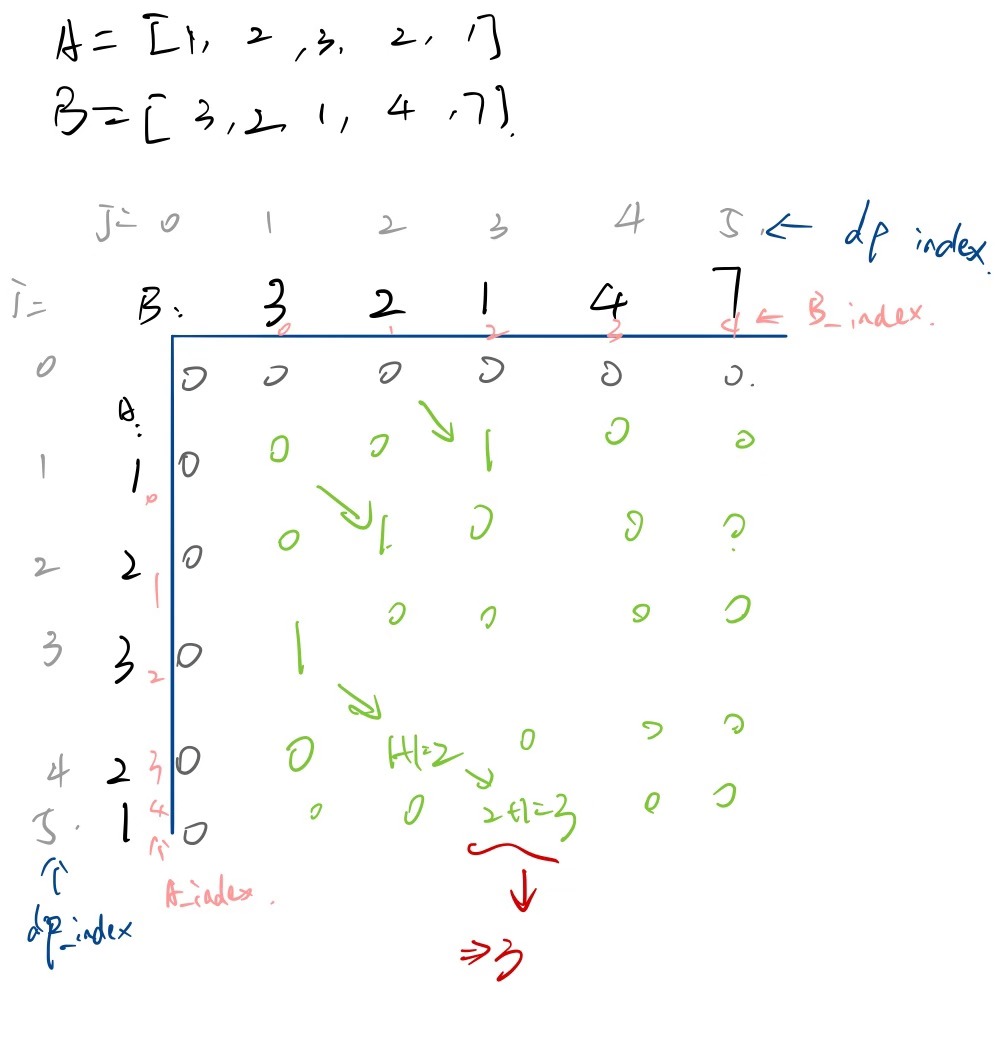 A = [1, 2, 3, 2, 1]
B = [3, 2, 1, 4, 7].
j= 0 1 2 3 4 5 ← dp index.
i= B: 3 2 1 4 7
0 1 2 3 4 ← B_index.
0 0 0 0 0 0 0.
A:
1 1 0 0 0 0 1 0 0
2 2 1 0 0 1 0 0 0
3 3 2 0 1 0 0 0 0
4 2 3 0 0 1+1=2 0 0 0
5. 1 4 0 0 0 2+1=3 0 0
↑ ↑ ↓
dp_index A_index. ⇒3